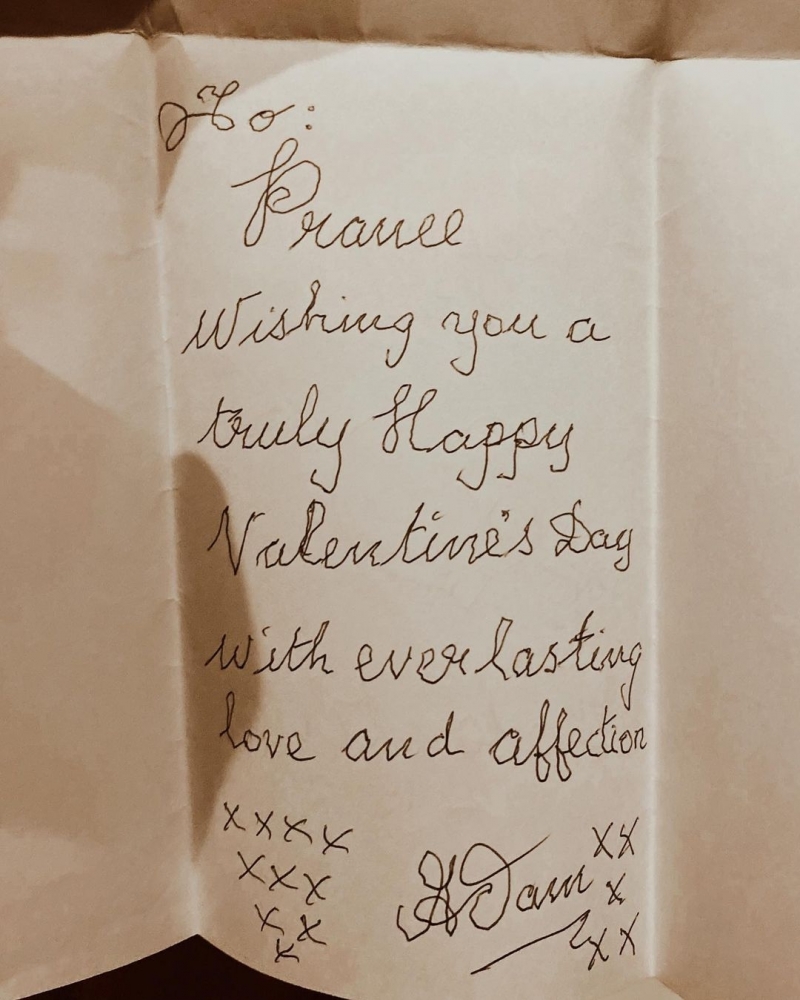 To:
Pranee
Wishing you a
truly Happy
Valentine's Day
with everlasting
love and affection
xxxx xx
xxx Adam x
xx xx
x